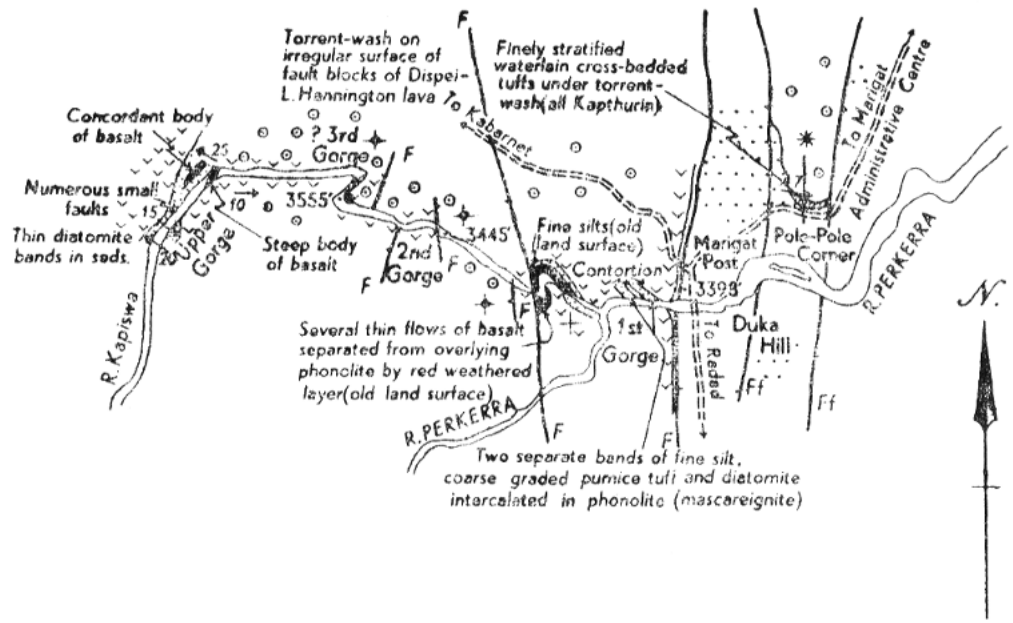 Torrent-wash on
irregular surface of
fault blocks of Dispei-
L. Hannington lava
Finely stratified
waterlain cross-bedded
tuffs under torrent-
wash(all Kapthurin)
F
To Kabarnet
To Marigat
Administrative Centre
Concordant body
of basalt
25
? 3rd
Gorge
F
Numerous small
faults
15
10
3555'
Thin diatomite
bands in seds.
Upper
Gorge
Steep body
of basalt
2nd
Gorge
F
F
3445'
Fine silts(old
land surface)
Contortion
Marigat
Post
3393'
Pole-Pole
Corner
R. PERKERRA
N.
R. Kapiswa
F
Several thin flows of basalt
separated from overlying
phonolite by red weathered
layer(old land surface)
1st
Gorge
To Radad
Duka
Hill
Ff
Ff
R. PERKERRA
F
F
Two separate bands of fine silt,
coarse graded pumice tuff and diatomite
intercalated in phonolite (mascareignite)